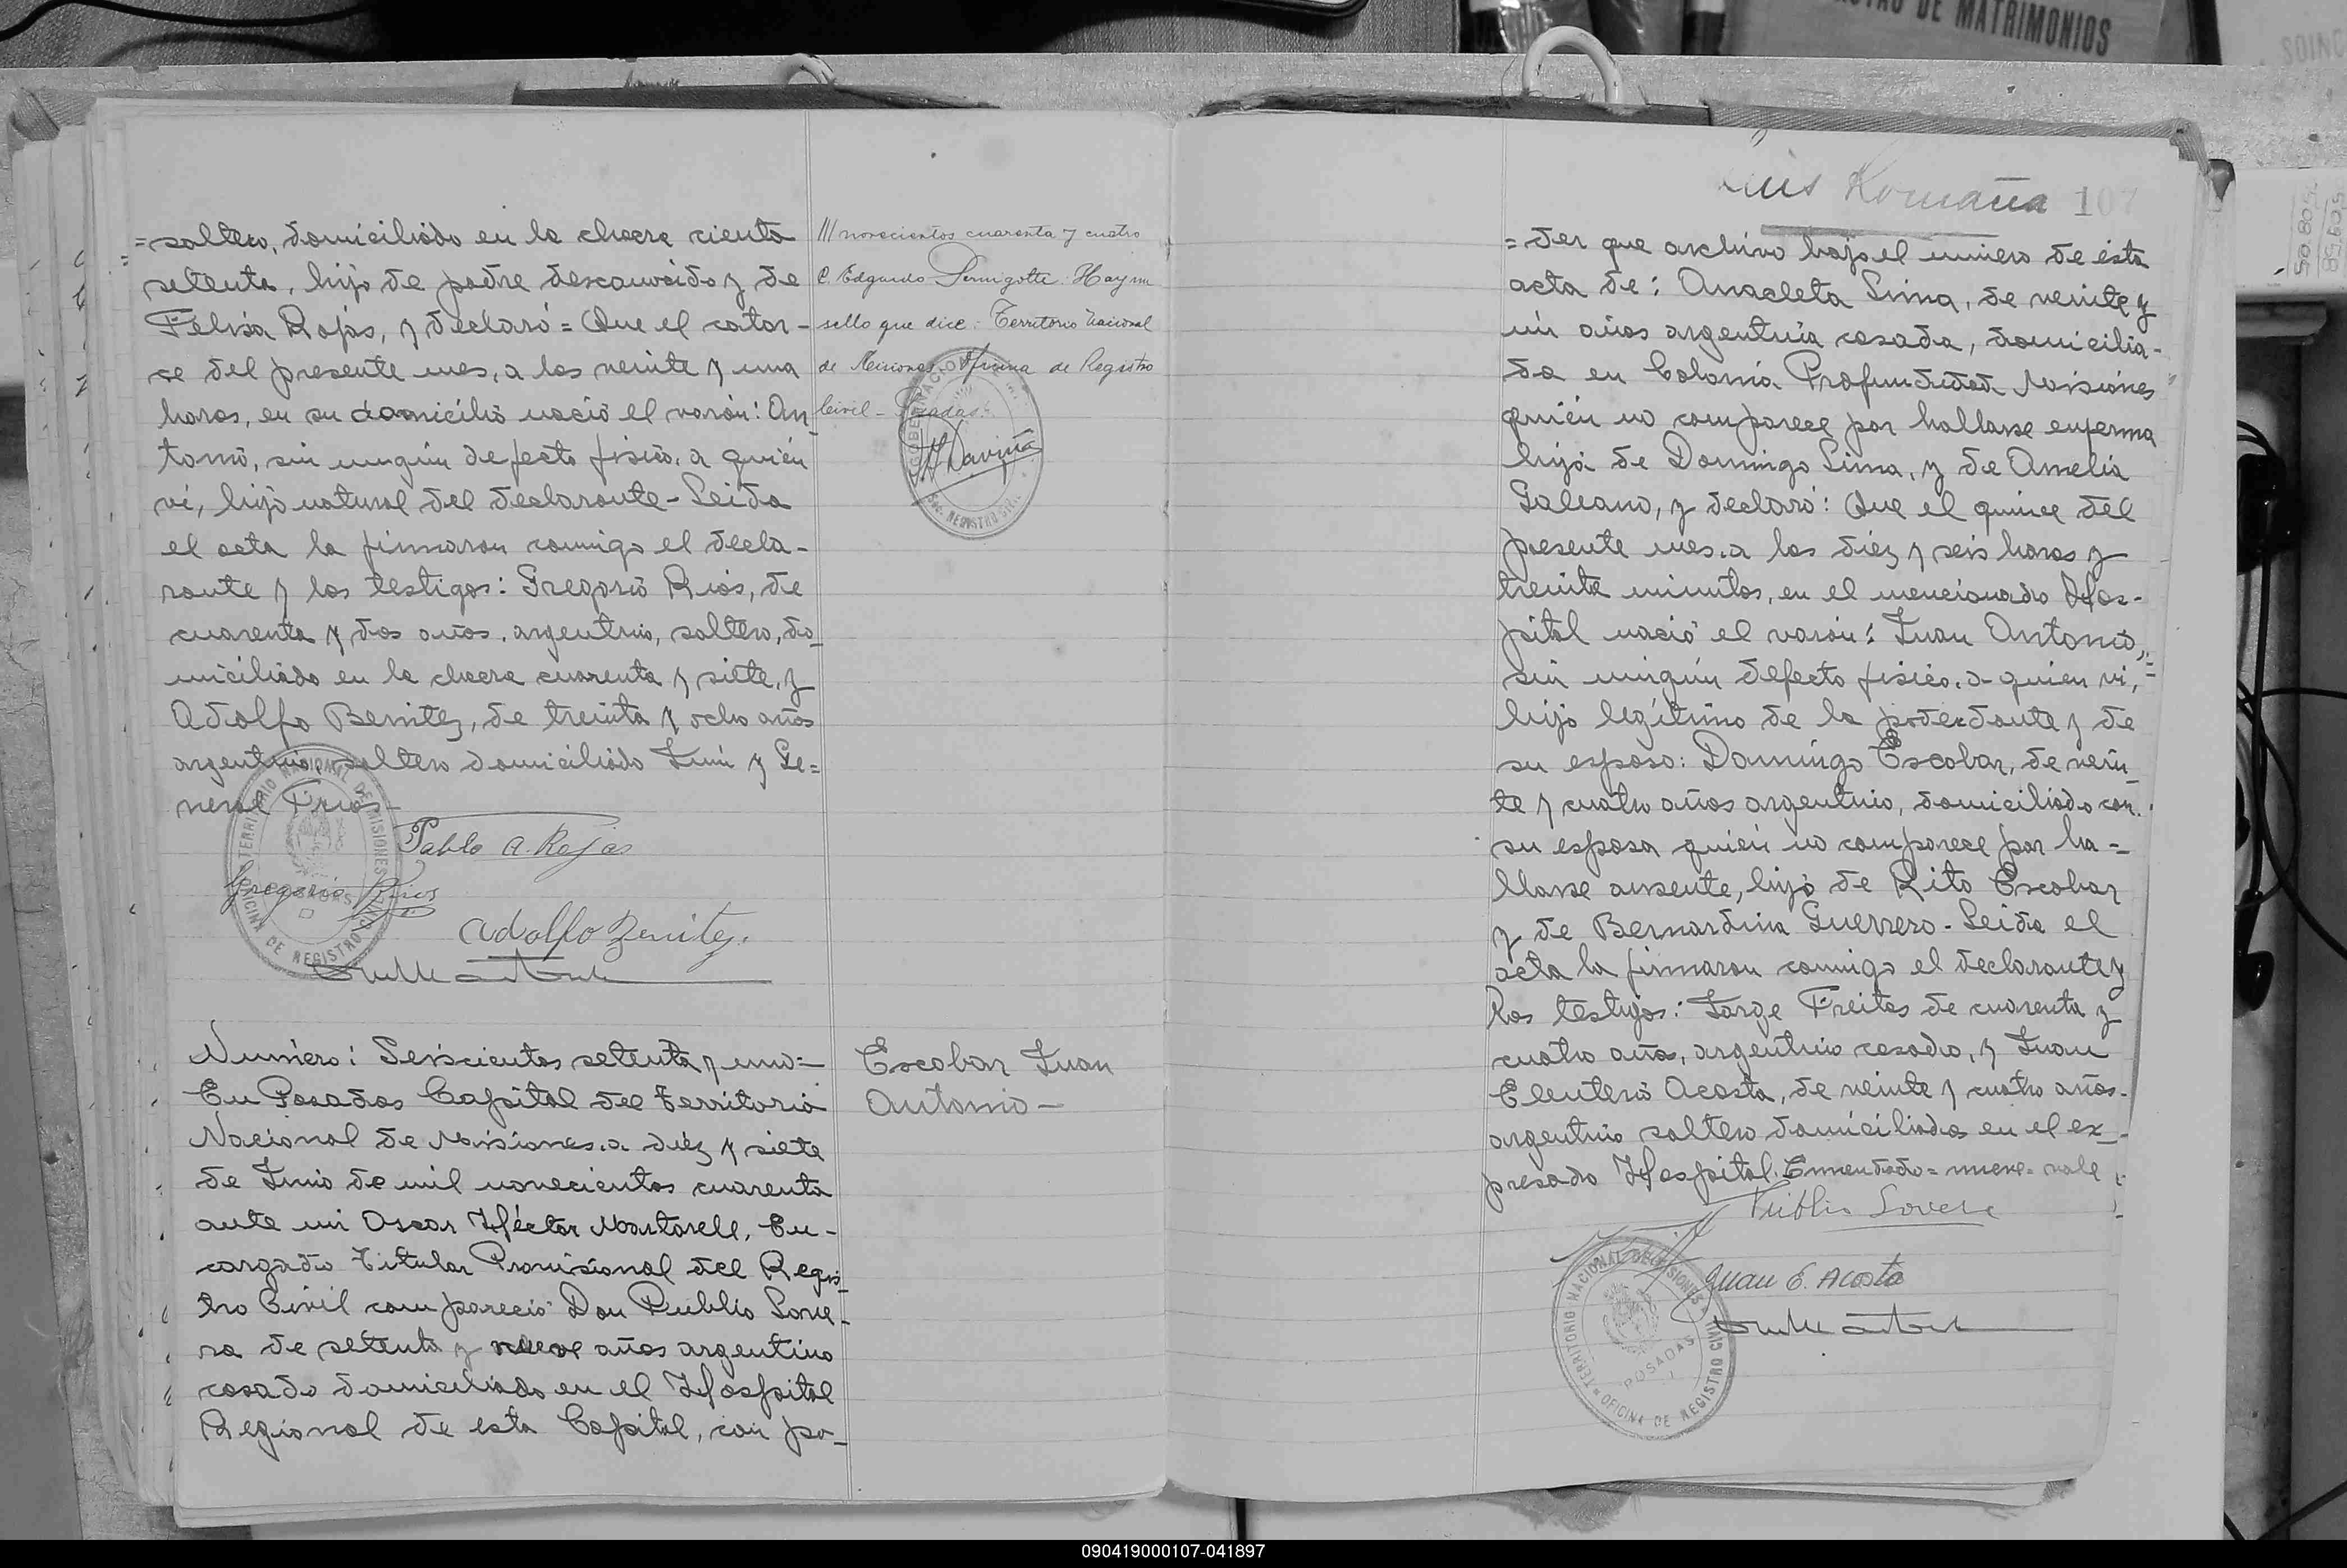 RO DE MATRIMONIOS
=soltero, domiciliado en la chacra ciento
setenta, hijo de padre desconocido y de
Felisa Rojas, y declaró= Que el cator-
ce del presente mes, a las veinte y una
horas, en su domicilio nació el varón: An_
tonio, sin ningún defecto fisico, a quién
ví, hijo natural del declarante-Leida
el acta la firmaron conmigo el decla-
rante y los testigos: Gregorio Rios, de
cuarenta y dos años, argentino, soltero, do_
miciliado en la chacra cuarenta y siete, y
Adolfo Benitez, de treinta y ocho años
argentino, soltero domiciliado Junin y Ge=
neral Frias-
Pablo A. Rojas
Gregorio Rios
Adolfo Benitez.
TERRITORIO NACIONAL DE MISIONES
OFICINA DE REGISTRO CIVIL
POSADAS
/// novecientos cuarenta y cuatro
C. Edgardo Pernigotte. Hay un
sello que dice: Territorio Nacional
de Misiones Oficina de Registro
Civil - Posadas.
Número: Seiscientos setenta y uno=
En Posadas Capital del Territorio
Nacional de Misiones, a diéz y siete
de Junio de mil novecientos cuarenta
ante mi Oscar Héctor Martorell, En-
cargado Titular Provisional del Regis_
tro Civil compareció Don Publio Love-
ra de setenta y nueve años argentino
casado domiciliado en el Hospital
Regional de esta Capital, con po_
Escobar Juan
Antonio-
Luis Romaña 107
=der que archivo bajo el número de ésta
acta de: Anacleta Lima, de veinte y
un años argentina casada, domicilia-
da en Colonia Profundidad Misiones
quién no comparece por hallarse enferma
hija de Domingo Lima, y de Amelia
Galeano, y declaró: Que el quince del
presente mes, a las diéz y seis horas y
treinta minutos, en el mencionado Hos-
pital nació el varón: Juan Antonio,
sin ningún defecto fisico, a quien ví,
hijo legítimo de la poderdante y de
su esposo: Domingo Escobar, de vein_
te y cuatro años argentino, domiciliado con
su esposa quién no comparece por ha-
llarse ausente, hijo de Rito Escobar
y de Bernardina Guerrero-Leida el
acta la firmaron conmigo el declarante y
los testigos: Jorge Freites de cuarenta y
cuatro años, argentino casado, y Juan
Eleuterio Acosta, de veinte y cuatro años-
argentino soltero domiciliados en el ex_
presado Hospital. Enmendado=nueve=vale
Publio Lovera
Juan E. Acosta
TERRITORIO NACIONAL DE MISIONES
POSADAS
OFICINA DE REGISTRO CIVIL
090419000107-041897